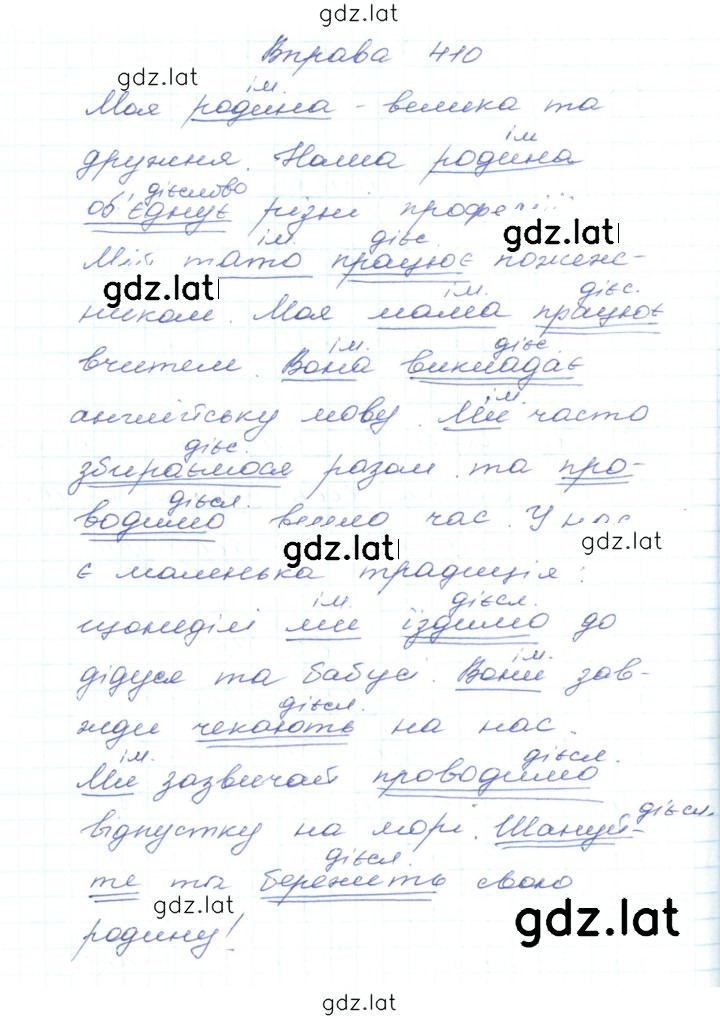 gdz.lat
Вправа 410
gdz.lat
ім.
Моя родина - велика та
ім
дружня. Наша родина
дієслово
об'єднує різні
gdz.lat
ім. дієс.
Мій тато працює пожеж-
gdz.lat
ім. дієс.
ником. Моя мама працює
ім. дієс
вчителем. Вона викладає
ім
англійську мову. Ми часто
дієс.
збираємося разом та про-
дієсл.
водимо весело час. У нас
gdz.lat
gdz.lat
є маленька традиція:
ім. дієсл.
щонеділі ми їздимо до
ім.
дідуся та бабусі. Вони зав-
дієсл.
жди чекають на нас.
ім. дієсл.
Ми зазвичай проводимо
дієсл.
відпустку на морі. Шануй-
дієсл.
те та бережіть свою
gdz.lat
gdz.lat
родину!
gdz.lat